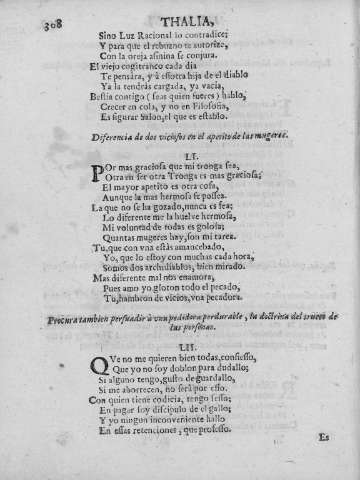 308
THALIA,
Sino Luz Racional lo contradice;
Y para que el rebuzno te autorize,
Con la oreja asinina se conjura.
El viejo cogitranco cada dia
Te pensára, y à essotra hija de el diablo
Ya la tendrás cargada, ya vacia,
Bestia contigo ( seas quien fueres ) hablo,
Crecer en cola, y no en Filosofia,
Es figurar Salon, el que es establo.
Diferencia de dos viciosos en el apetito de las mugeres.
LI.
POr mas graciosa que mi tronga sea,
Otra en ser otra Tronga es mas graciosa;
El mayor apetito es otra cosa,
Aunque la mas hermosa se possea.
La que no se ha gozado, nunca es fea;
Lo diferente me la huelve hermosa,
Mi voluntad de todas es golosa;
Quantas mugeres hay, son mi tarea.
Tu, que con vna estás amancebado,
Yo, que lo estoy con muchas cada hora,
Somos dos archidiablos, bien mirado.
Mas diferente mal nos enamora;
Pues amo yo gloton todo el pecado,
Tu, hambron de vicios, vna pecadora.
Procura tambien persuadir à vna pedidora perdurable, la doctrina del trueco de
las personas.
LII.
QVe no me quieren bien todas, confiesso,
Que yo no soy doblon para dudallo;
Si alguno tengo, gusto de guardallo,
Si me aborrecen, no será por esso.
Con quien tiene codicia, tengo sesso;
En pagar soy discipulo de el gallo;
Y yo ningun inconveniente hallo
En essas retenciones, que professo.
Es